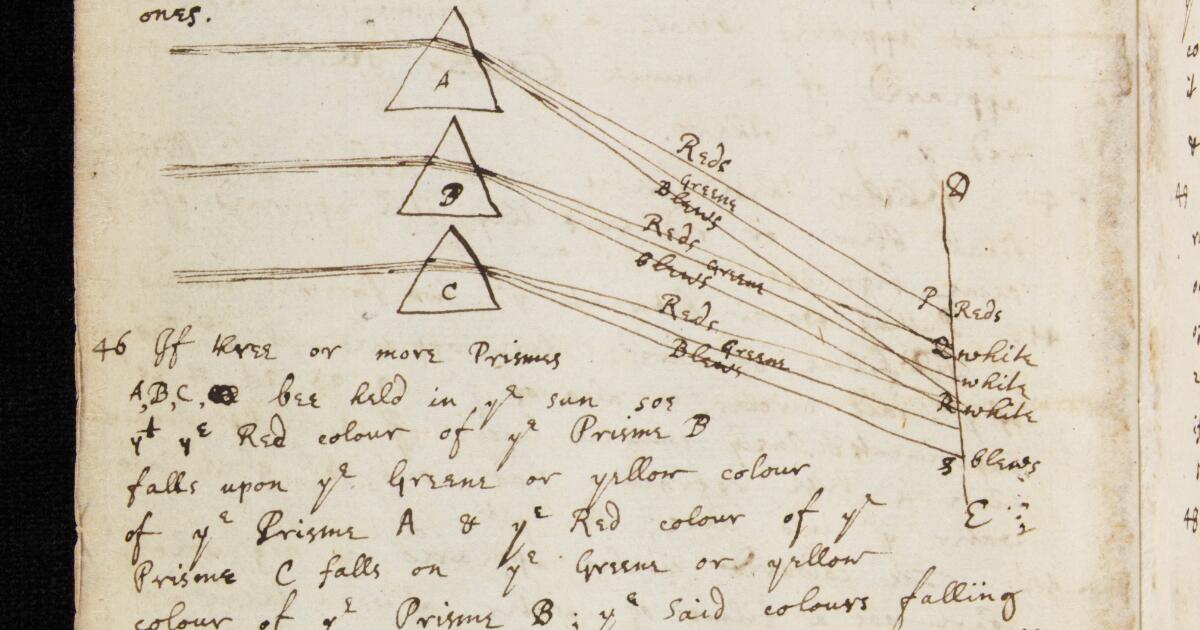 ones.
A
Reds
Greene
Blews
D
B
Reds
Greene
blews
C
Reds
Greene
Blews
P Reds
Q white
white
R white
S blews
E
46 If three or more Prismes
A,B,C, bee held in yᵉ sun soe
yᵗ yᵉ Red colour of yᵉ Prisme B
falls upon yᵉ Greene or yellow colour
of yᵉ Prisme A & yᵉ Red colour of yᵉ
Prisme C falls on yᵉ Greene or yellow
colour of yᵉ Prisme B; yᵉ said colours falling
49
48